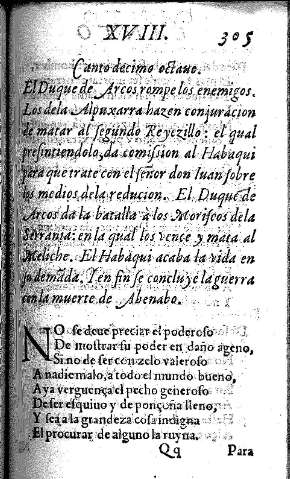 XVIII. 305
Canto decimo octauo.
El Duque de Arcos rompe los enemigos.
Los dela Alpuxarra hazen conjuracion
de matar al segundo Reyezillo: el qual
presintiendolo, da comision al Habaqui
para que trate con el señor don Iuan sobre
los medios dela reducion. El Duque de
Arcos da la batalla à los Moriscos dela
Serrania: en la qual los vence y mata al
Meliche. El Habaqui acaba la vida en
su demāda. Y en fin se concluye la guerra
con la muerte de Abenabo.
NO se deue preciar el poderoso
De mostrar su poder en daño ageno,
Si no de ser con zelo valeroso
A nadie malo, a todo el mundo bueno,
Aya verguença el pecho generoso
De ser esquiuo y de ponçoña lleno,
Y seá a la grandeza cosa indigna
El procurar de alguno la ruyna.
Qq Para